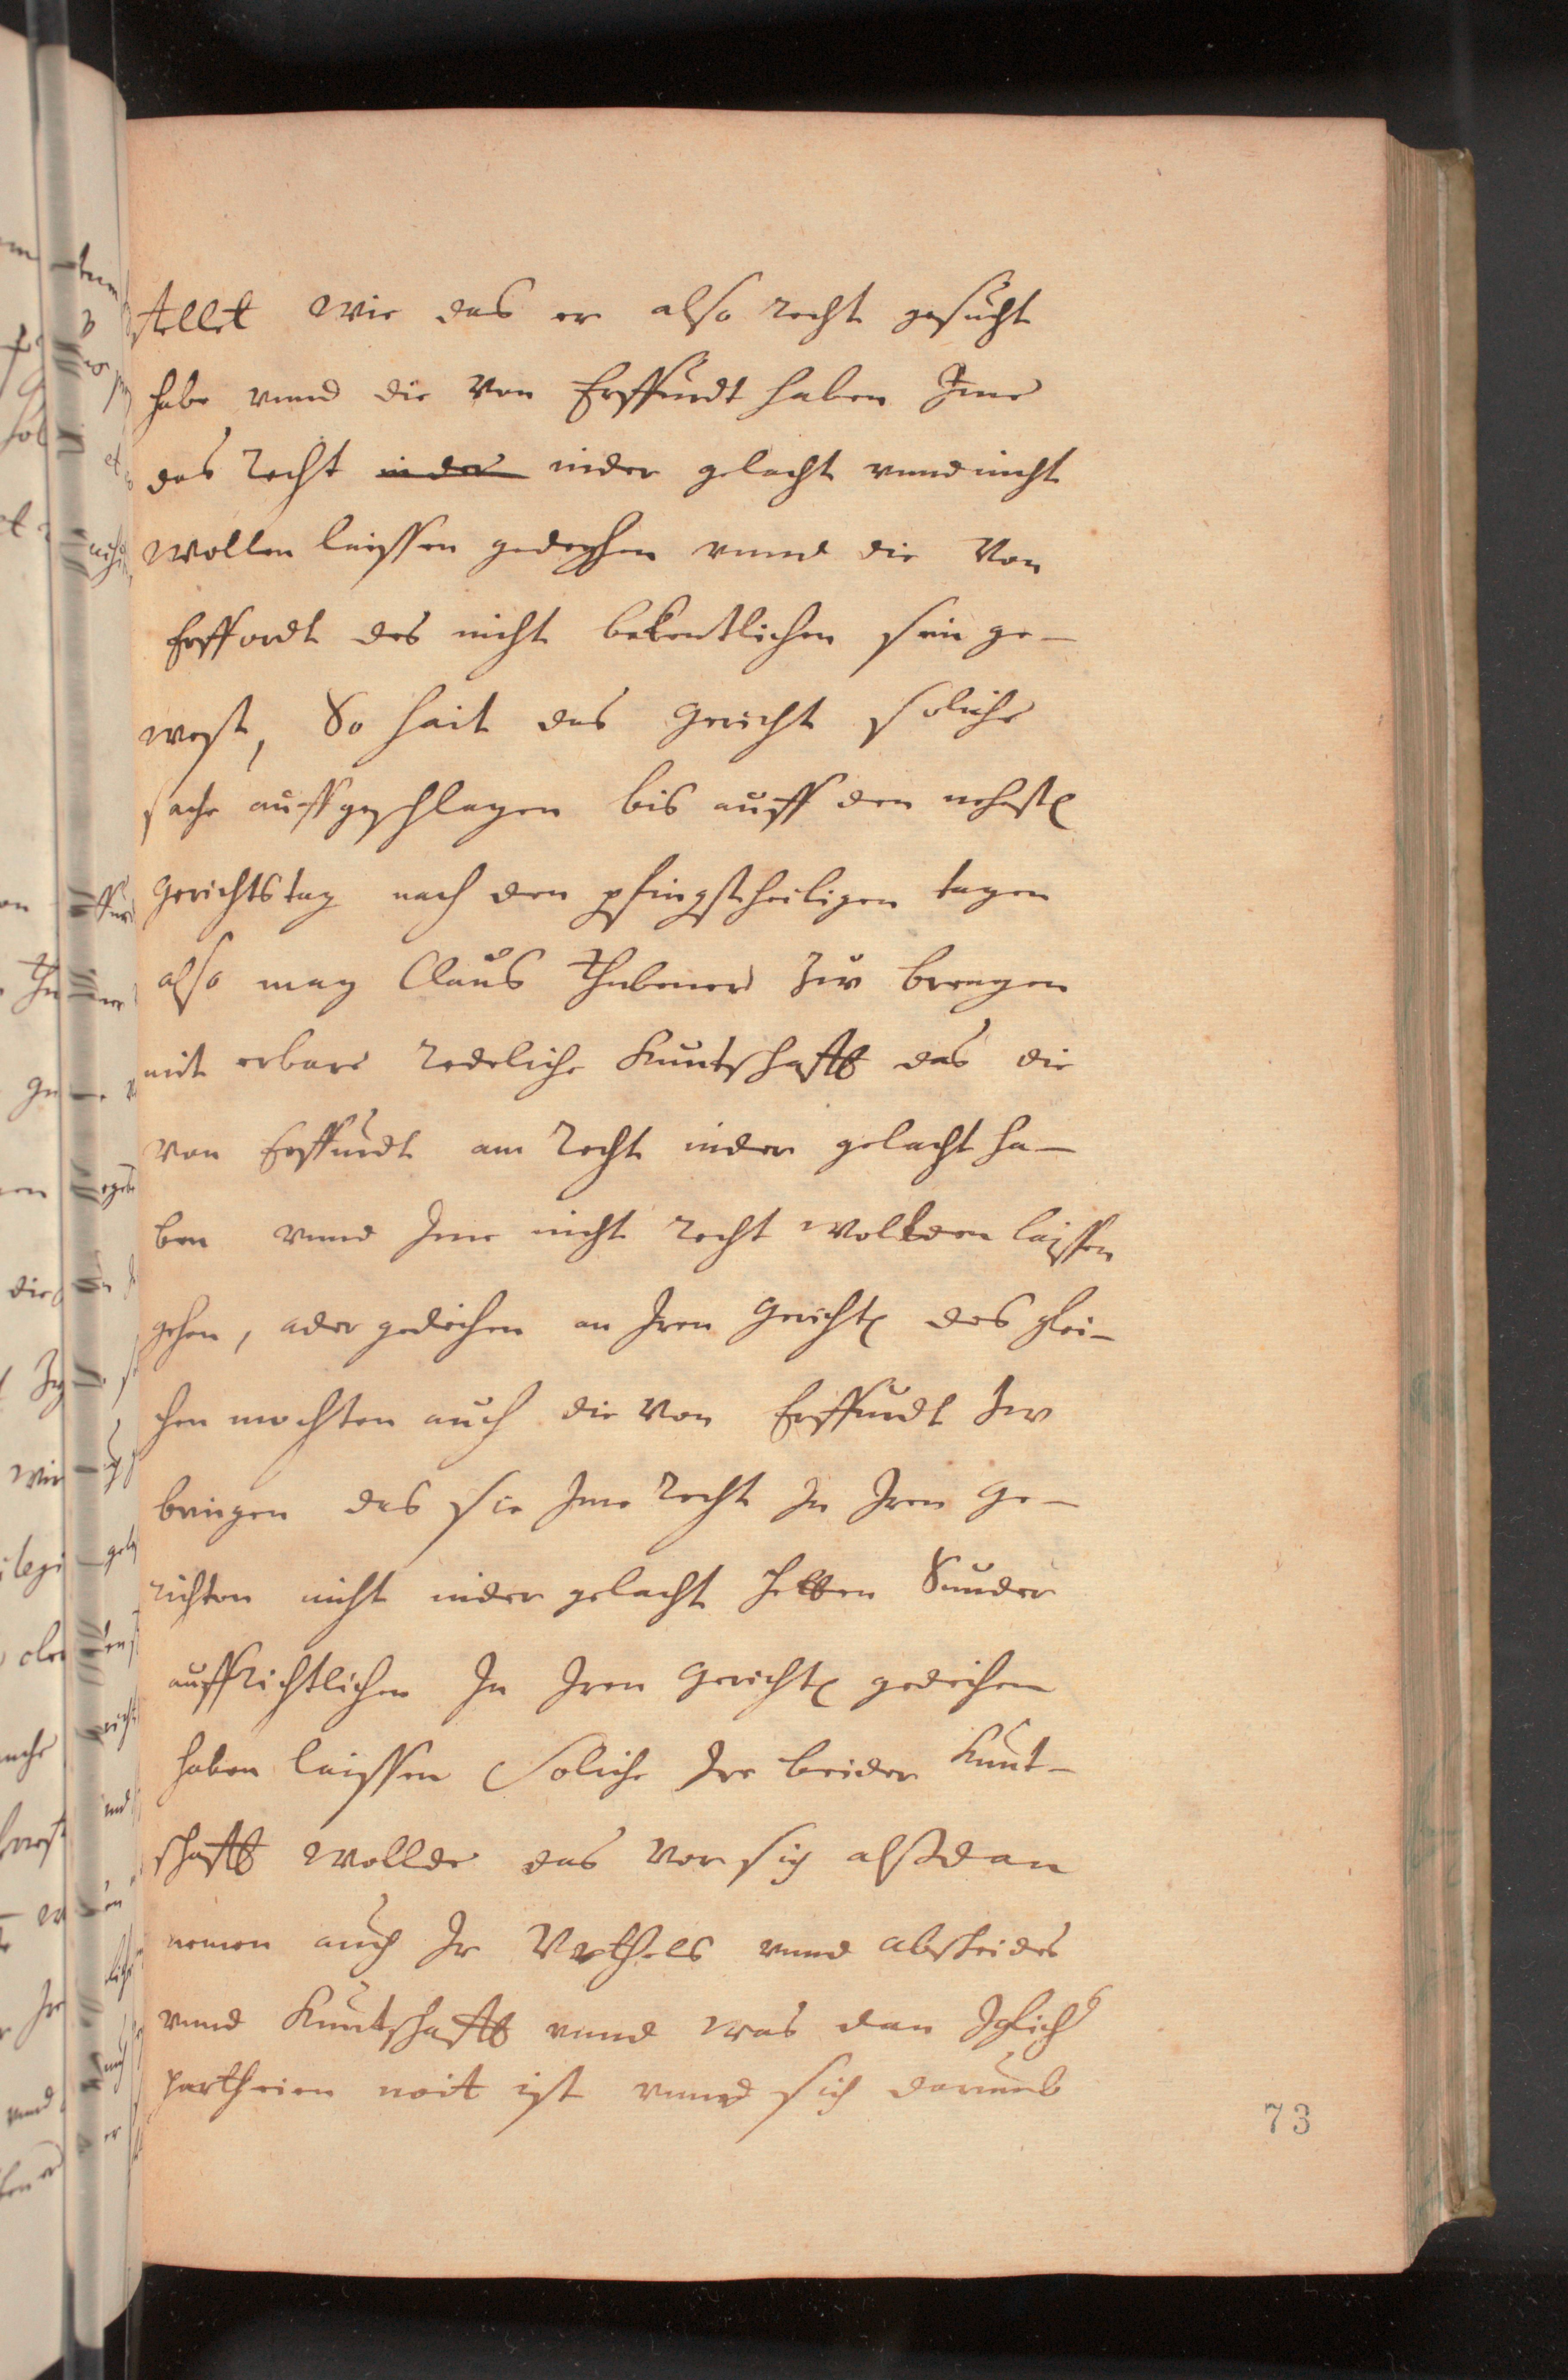 stellet wie das er also recht gesucht
habe vnnd die von Erffurdt haben Ime
das recht in der nider gelacht vnnd nicht
wollen laissen gedeyhen vnnd die von
Erffordt des nicht bekentlichen sein ge-
west, So hait das gericht soliche
sache auffgeschlagen bis auff den nehesten
gerichtstag nach den pfingstheiligen tagen
also mag Claus Thubener Zw brengen
mit erbare redeliche Kuntschafft das die
von Erffurdt am recht nider gelacht ha-
ben vnnd Ime nicht recht wolden laissen
gehen, ader gedeihen an Iren gerichten des glei-
chen mochten auch die von Erffurdt Zw
bringen das sie Ime recht In Iren ge-
richten nicht nider gelacht hetten Sunder
auffrichtlichen In Iren gerichten gedeihen
haben laissen Soliche Ire beider Kunt-
schafft wollde das vor sich alßdan
nemen auch Ir Vrthels vnnd abscheides
vnnd Kuntschafft vnnd was dan Iglicher
partheien noit ist vnnd sich darumb
73